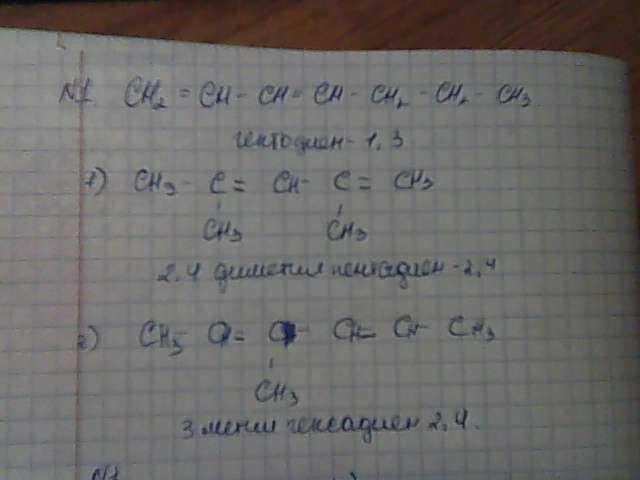 №1 CH2 = CH - CH = CH - CH2 - CH2 - CH3
гептадиен - 1, 3
1) CH3 - C = CH - C = CH3
CH3 CH3
2,4 диметил пентадиен - 2,4
2) CH3 - CH = C - CH = CH - CH3
CH3
3 метил гексадиен 2,4.